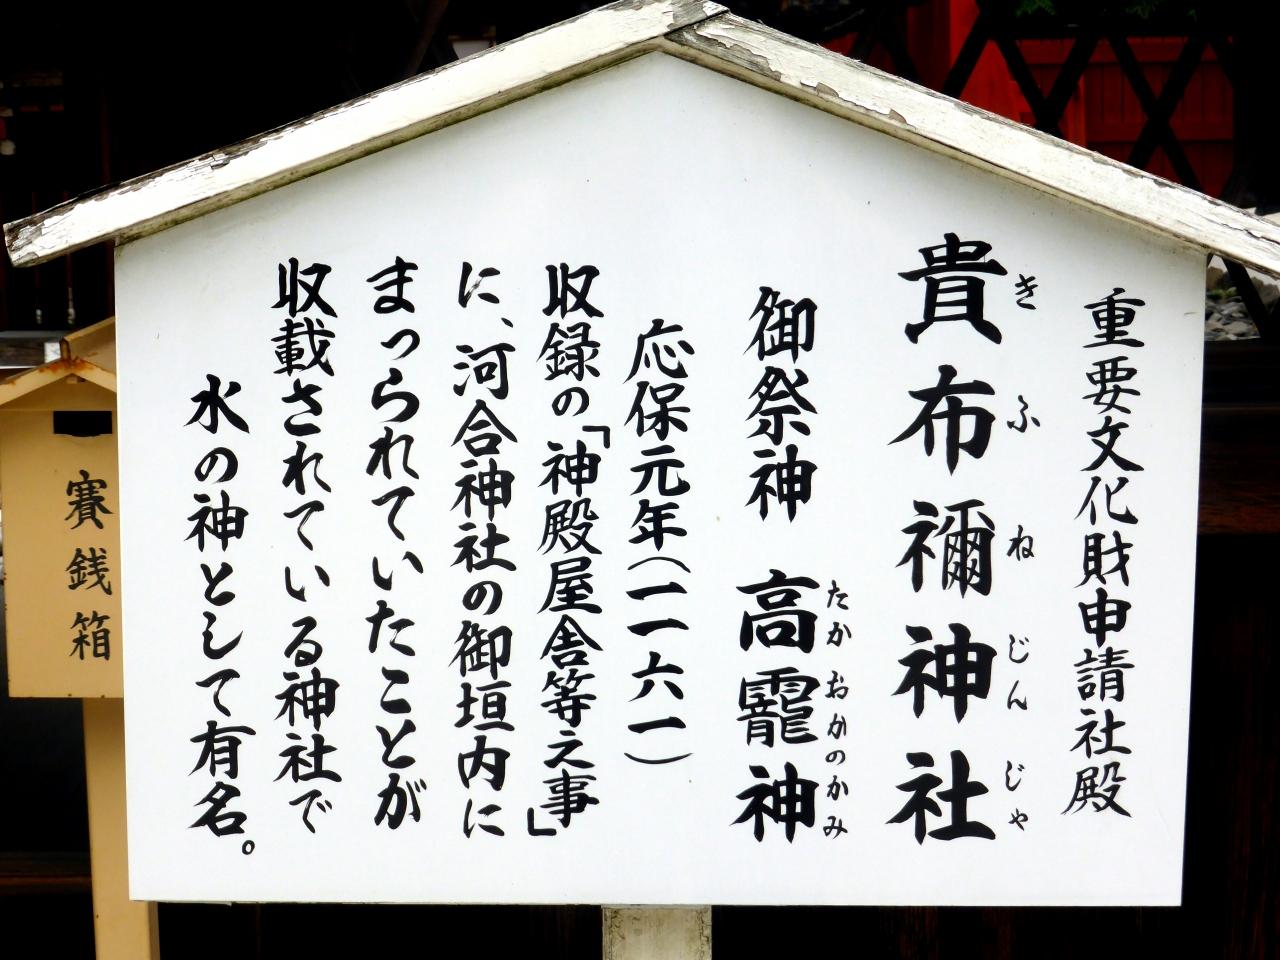 重要文化財申請社殿
貴布禰神社
きふねじんじゃ
御祭神 高龗神
たかおかのかみ
応保元年(一一六一)
収録の「神殿屋舎等之事」
に、河合神社の御垣内に
まつられていたことが
収載されている神社で
水の神として有名。
賽銭箱